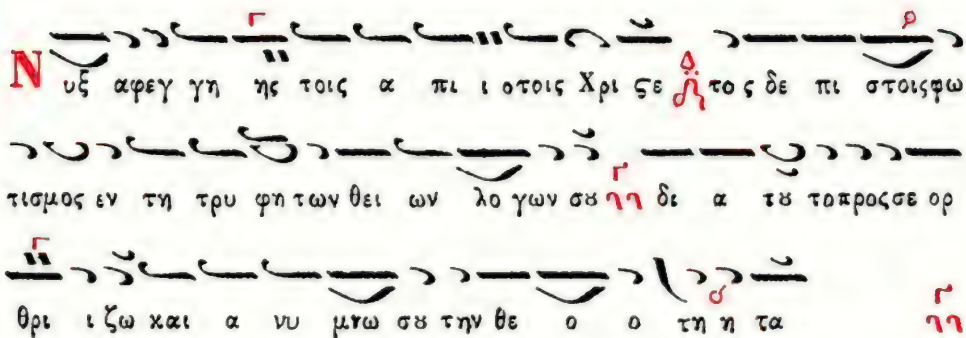 Νυξ αφεγ γη ης τοις α πι ι στοις Χρι ϛε το ς δε πι στοις φω
τισμος εν τη τρυ φη των θει ων λο γων σȣ δι α τȣ το προς σε ορ
θρι ι ζω και α νυ μνω σȣ την θε ο ο τη η τα